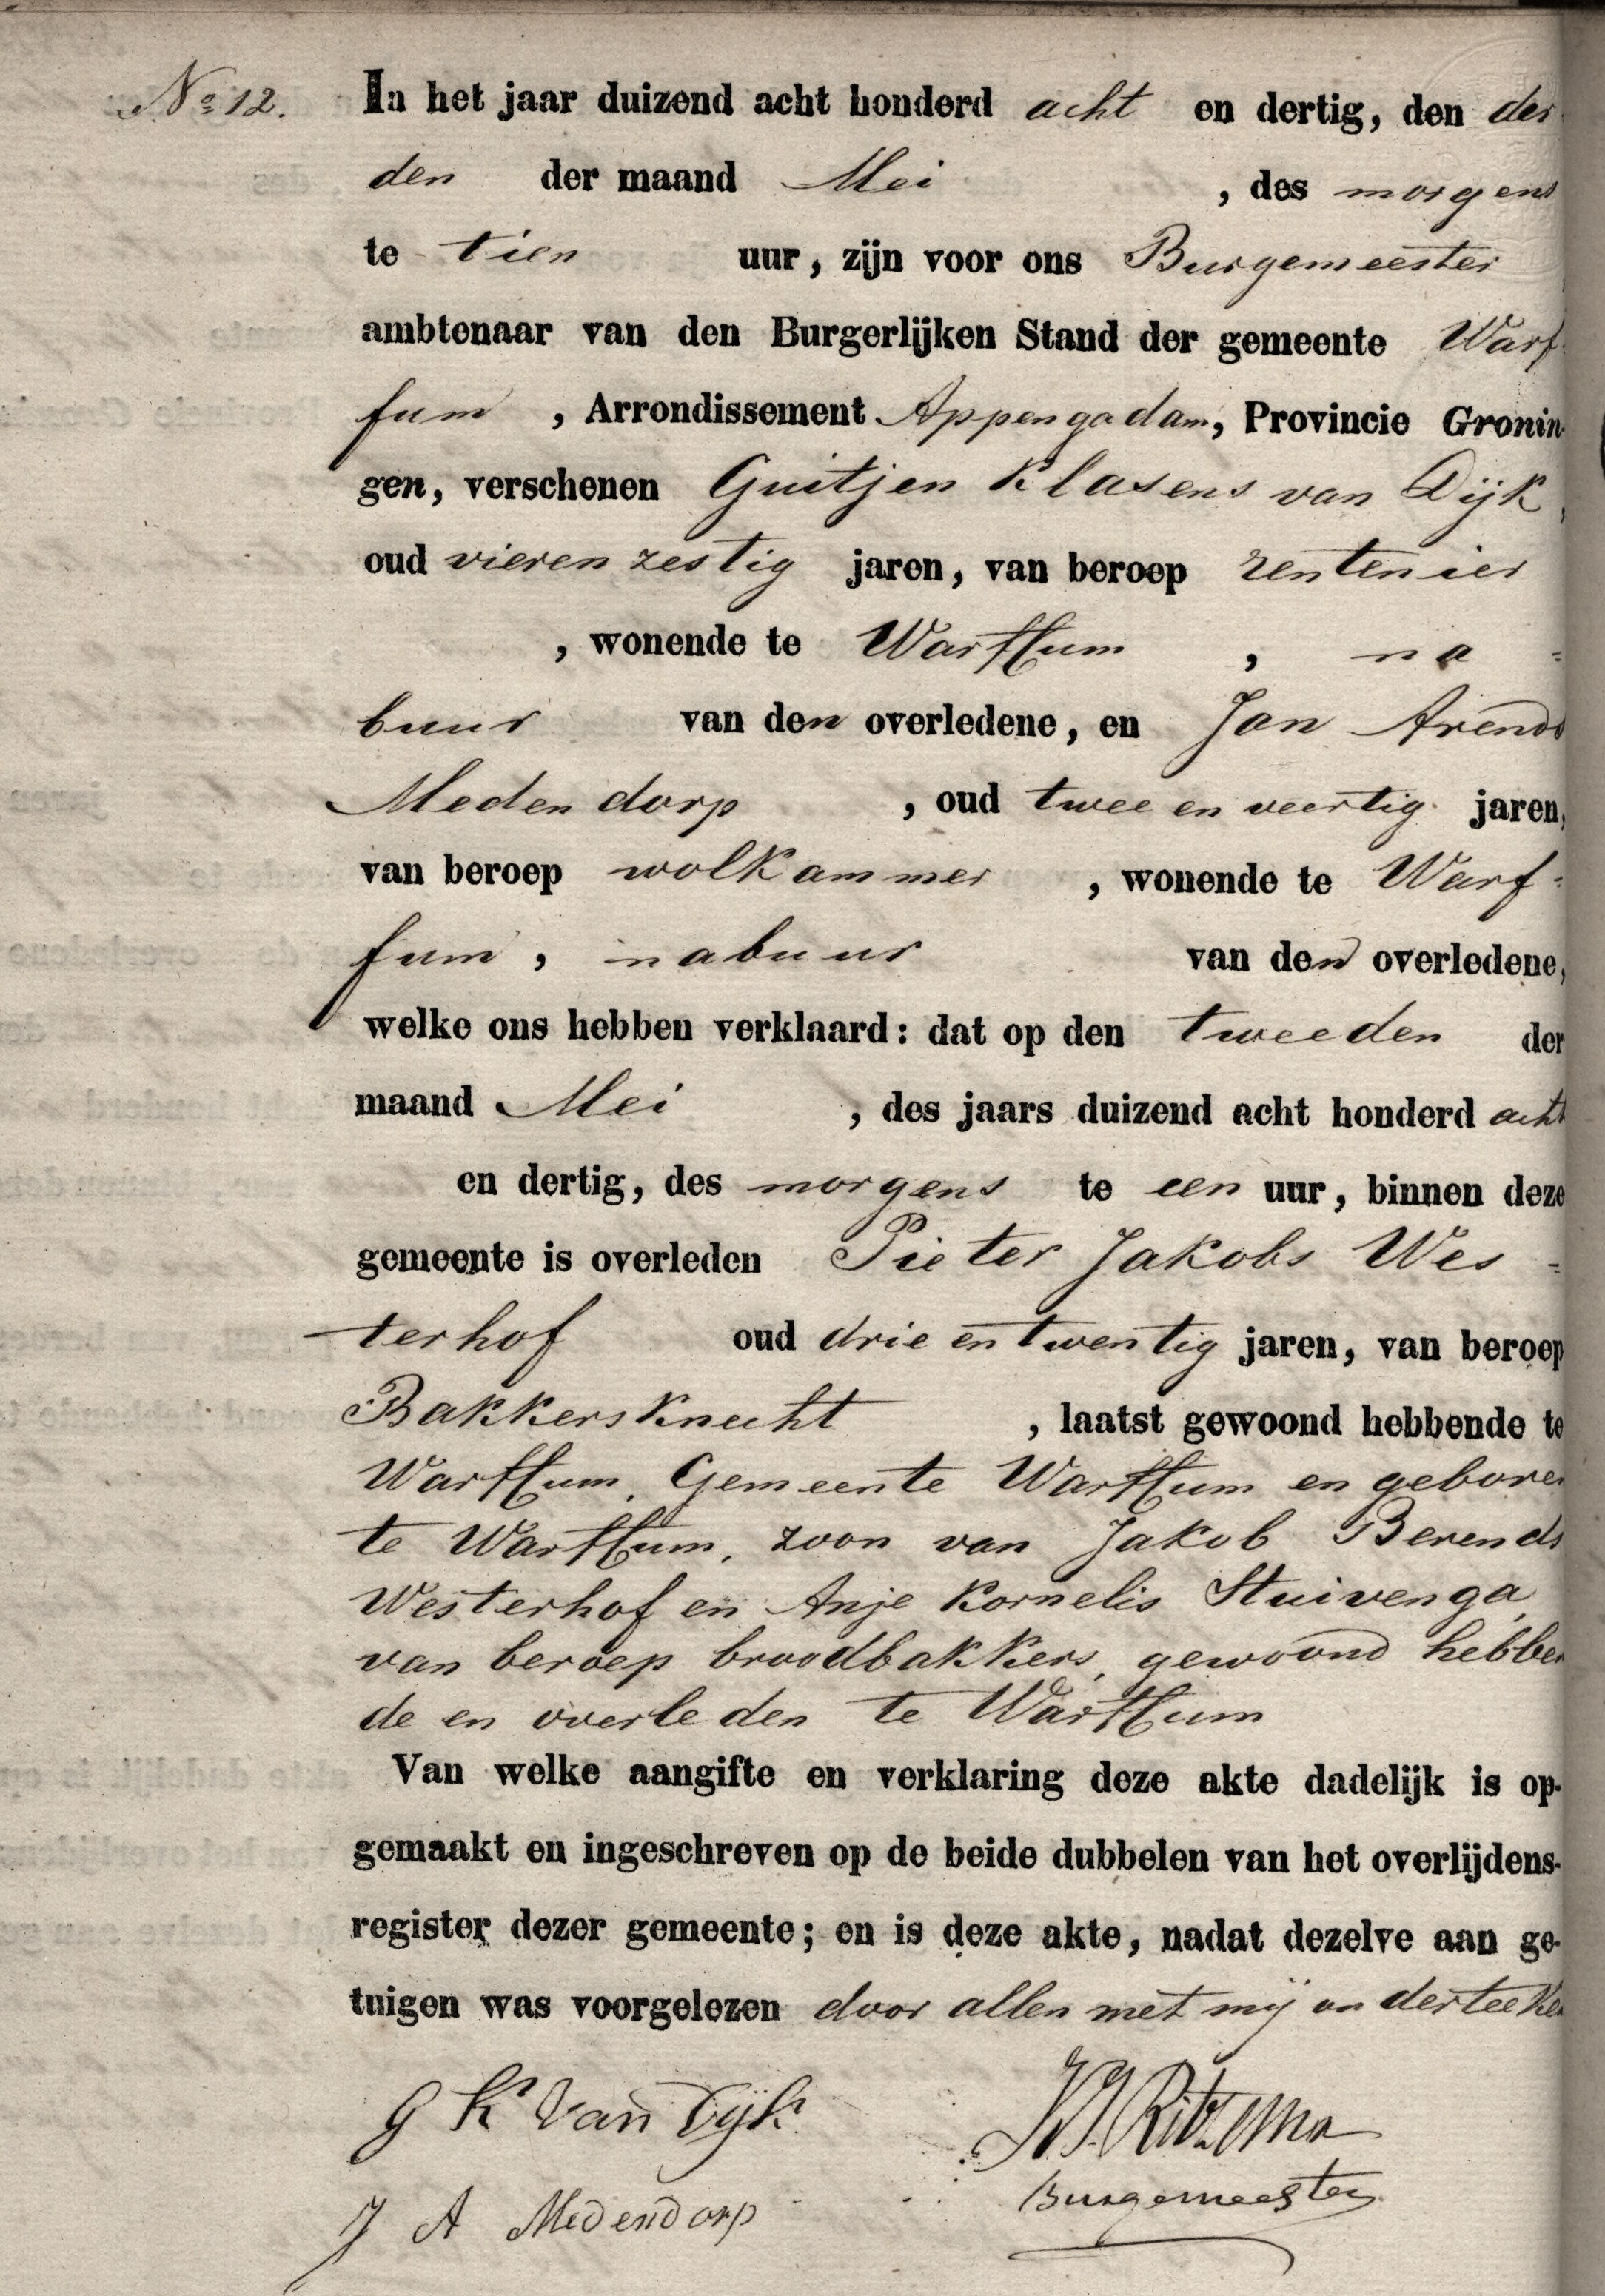 No 12.
In het jaar duizend acht honderd acht en dertig, den der
den der maand Mei , des morgens
te tien uur, zijn voor ons Burgemeester
ambtenaar van den Burgerlijken Stand der gemeente Warf-
fum , Arrondissement Appengadam, Provincie Gronin-
gen, verschenen Guitjen Klasens van Dijk,
oud vieren zestig jaren, van beroep rentenier
, wonende te Warffum , na =
buur van den overledene, en Jan Arends
Medendorp , oud twee en veertig jaren,
van beroep wolkammer , wonende te Warf=
fum, nabuur van den overledene,
welke ons hebben verklaard: dat op den tweeden der
maand Mei , des jaars duizend acht honderd acht
en dertig, des morgens te een uur, binnen deze
gemeente is overleden Pieter Jakobs Wes =
terhof oud drie en twentig jaren, van beroep
Bakkersknecht , laatst gewoond hebbende te
Warffum, Gemeente Warffum en geboren
te Warffum, zoon van Jakob Berends
Westerhof en Anje Kornelis Stuivenga,
van beroep broodbakkers, gewoond hebben
de en overleden te Warffum
Van welke aangifte en verklaring deze akte dadelijk is op-
gemaakt en ingeschreven op de beide dubbelen van het overlijdens-
register dezer gemeente; en is deze akte, nadat dezelve aan ge-
tuigen was voorgelezen door allen met mij onderteeken
G K Van Dijk
Ritzema
Burgemeester
J A Medendorp